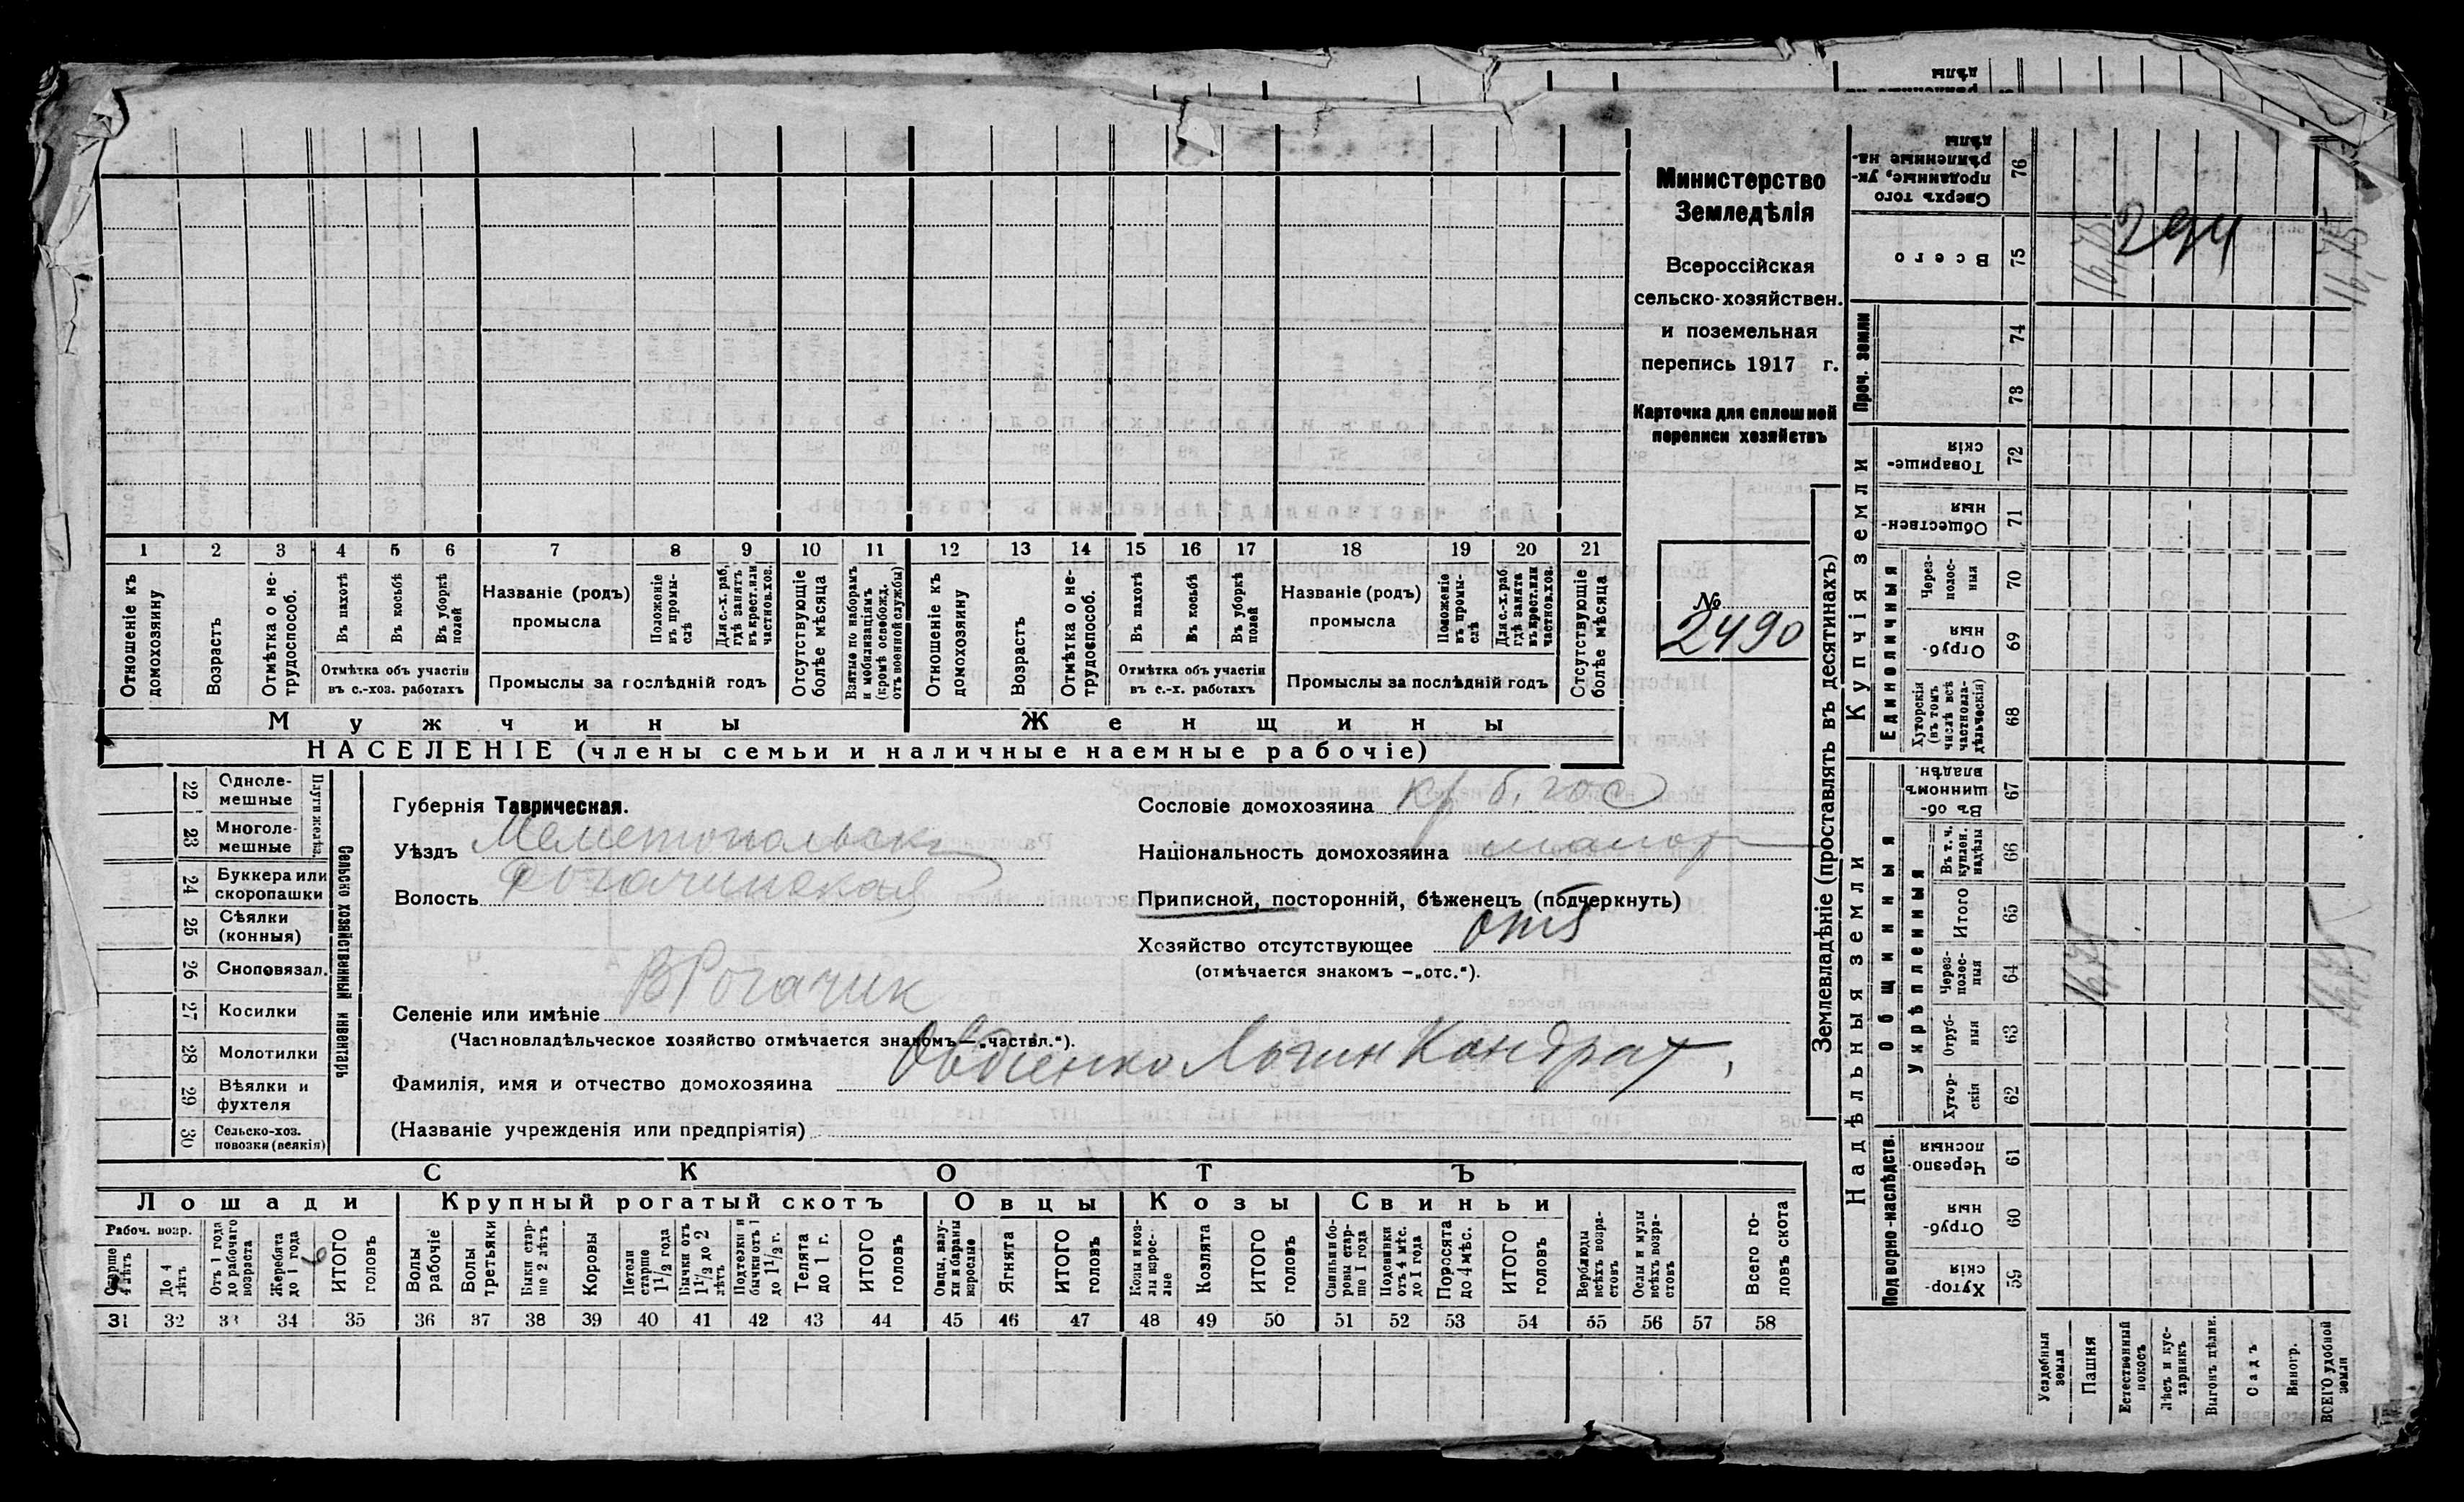 Министерство
Земледѣлія
Всероссійская
сельско-хозяйствен.
и поземельная
перепись 1917 г.
Карточка для сплошной
переписи хозяйствъ
№
2490
1 2 3 4 5 6 7 8 9 10 11 12 13 14 15 16 17 18 19 20 21
Отношеніе къ домохозяину
Возрастъ
Отмѣтка о не-трудоспособ.
Въ пахотѣ
Въ косьбѣ
Въ уборкѣ полей
Отмѣтка объ участіи
въ с.-хоз. работахъ
Названіе (родъ)
промысла
Положеніе въ промы-слѣ
Для с.-х. раб, гдѣ занятъ въ крест. или частнов. хоз.
Промыслы за послѣдній годъ
Отсутствующіе болѣе мѣсяца
Взятые по наборамъ и мобилизаціямъ (кромѣ освобожд. отъ военной службы)
Отношеніе къ домохозяину
Возрастъ
Отмѣтка о не-трудоспособ.
Въ пахотѣ
Въ косьбѣ
Въ уборкѣ полей
Отмѣтка объ участіи
въ с.-х. работахъ
Названіе (родъ)
промысла
Положеніе въ промы-слѣ
Для с.-х. раб. гдѣ занята въ крест. или частнов. хоз.
Промыслы за послѣдній годъ
Отсутствующіе болѣе мѣсяца
Мужчины Женщины
НАСЕЛЕНІЕ (члены семьи и наличные наемные рабочіе)
Сельско хозяйственный инвентарь
Плуги желѣз.
22 Одноле-мешные
23 Многоле-мешные
24 Буккера или скоропашки
25 Сѣялки (конныя)
26 Сноповязал.
27 Косилки
28 Молотилки
29 Вѣялки и фухтеля
30 Сельско-хоз. повозки (всякія)
Губернія Таврическая.
Уѣздъ Мелитопольск
Волость Рогачинская
Сословіе домохозяина кр б. гос
Національность домохозяина малор
Приписной, посторонній, бѣженецъ (подчеркнуть)
Хозяйство отсутствующее отс
(отмѣчается знакомъ —„отс.“).
Селеніе или имѣніе В Рогачик
(Частновладѣльческое хозяйство отмѣчается знакомъ—„частвл.“).
Фамилія, имя и отчество домохозяина Овдіенко Логин Кондрат,
(Названіе учрежденія или предпріятія)
СКОТЪ
Лошади Крупный рогатый скотъ Овцы Козы Свиньи
Рабоч. возр.
Старше 4 лѣтъ
До 4 лѣтъ
Отъ 1 года до рабочаго возраста
Жеребята до 1 года
ИТОГО головъ
6
Волы рабочіе
Волы третьяки
Быки стар-ше 2 лѣтъ
Коровы
Нетели старше 1 1/2 года
Бычки отъ 1 1/2 до 2 лѣтъ
Подтелки и бычки отъ 1 до 1 1/2 г.
Телята до 1 г.
ИТОГО головъ
Овцы, валу-хи и бараны взрослые
Ягнята
ИТОГО головъ
Козы и коз-лы взрос-лые
Козлята
ИТОГО головъ
Свиньи и бо-ровы стар-ше 1 года
Подсвинки отъ 4 мѣс. до 1 года
Поросята до 4 мѣс.
ИТОГО головъ
Верблюды всѣхъ возра-стовъ
Ослы и мулы всѣхъ возра-стовъ
Всего го-ловъ скота
31 32 33 34 35 36 37 38 39 40 41 42 43 44 45 46 47 48 49 50 51 52 53 54 55 56 57 58
Землевладѣніе (проставлять въ десятинахъ)
Надѣльныя земли
Купчія земли
Проч. земли
Подворно-наслѣдств.
Общинныя
Укрѣпленныя
Единоличныя
Хутор-скія 59
Отруб-ныя 60
Черезпо-лосныя 61
Хутор-скія 62
Отруб-ныя 63
Через-полос-ныя 64
Итого 65
Въ т. ч. куплен. надѣлы 66
Въ об-щинномъ владѣн. 67
Хуторскія (въ томъ числѣ всѣ частновла-дѣльческія) 68
Отруб-ныя 69
Через-полос-ныя 70
Обществен-ныя 71
Товарище-скія 72
73
74
Всего 75
Сверхъ того проданные, ук-рѣпленные на-дѣлы 76
294
Усадебныя земли
Пашня
Естественный покосъ
Лѣсъ и кус-тарникъ
Выгонъ цѣлин.
Садъ
Виногр.
ВСЕГО удобной земли